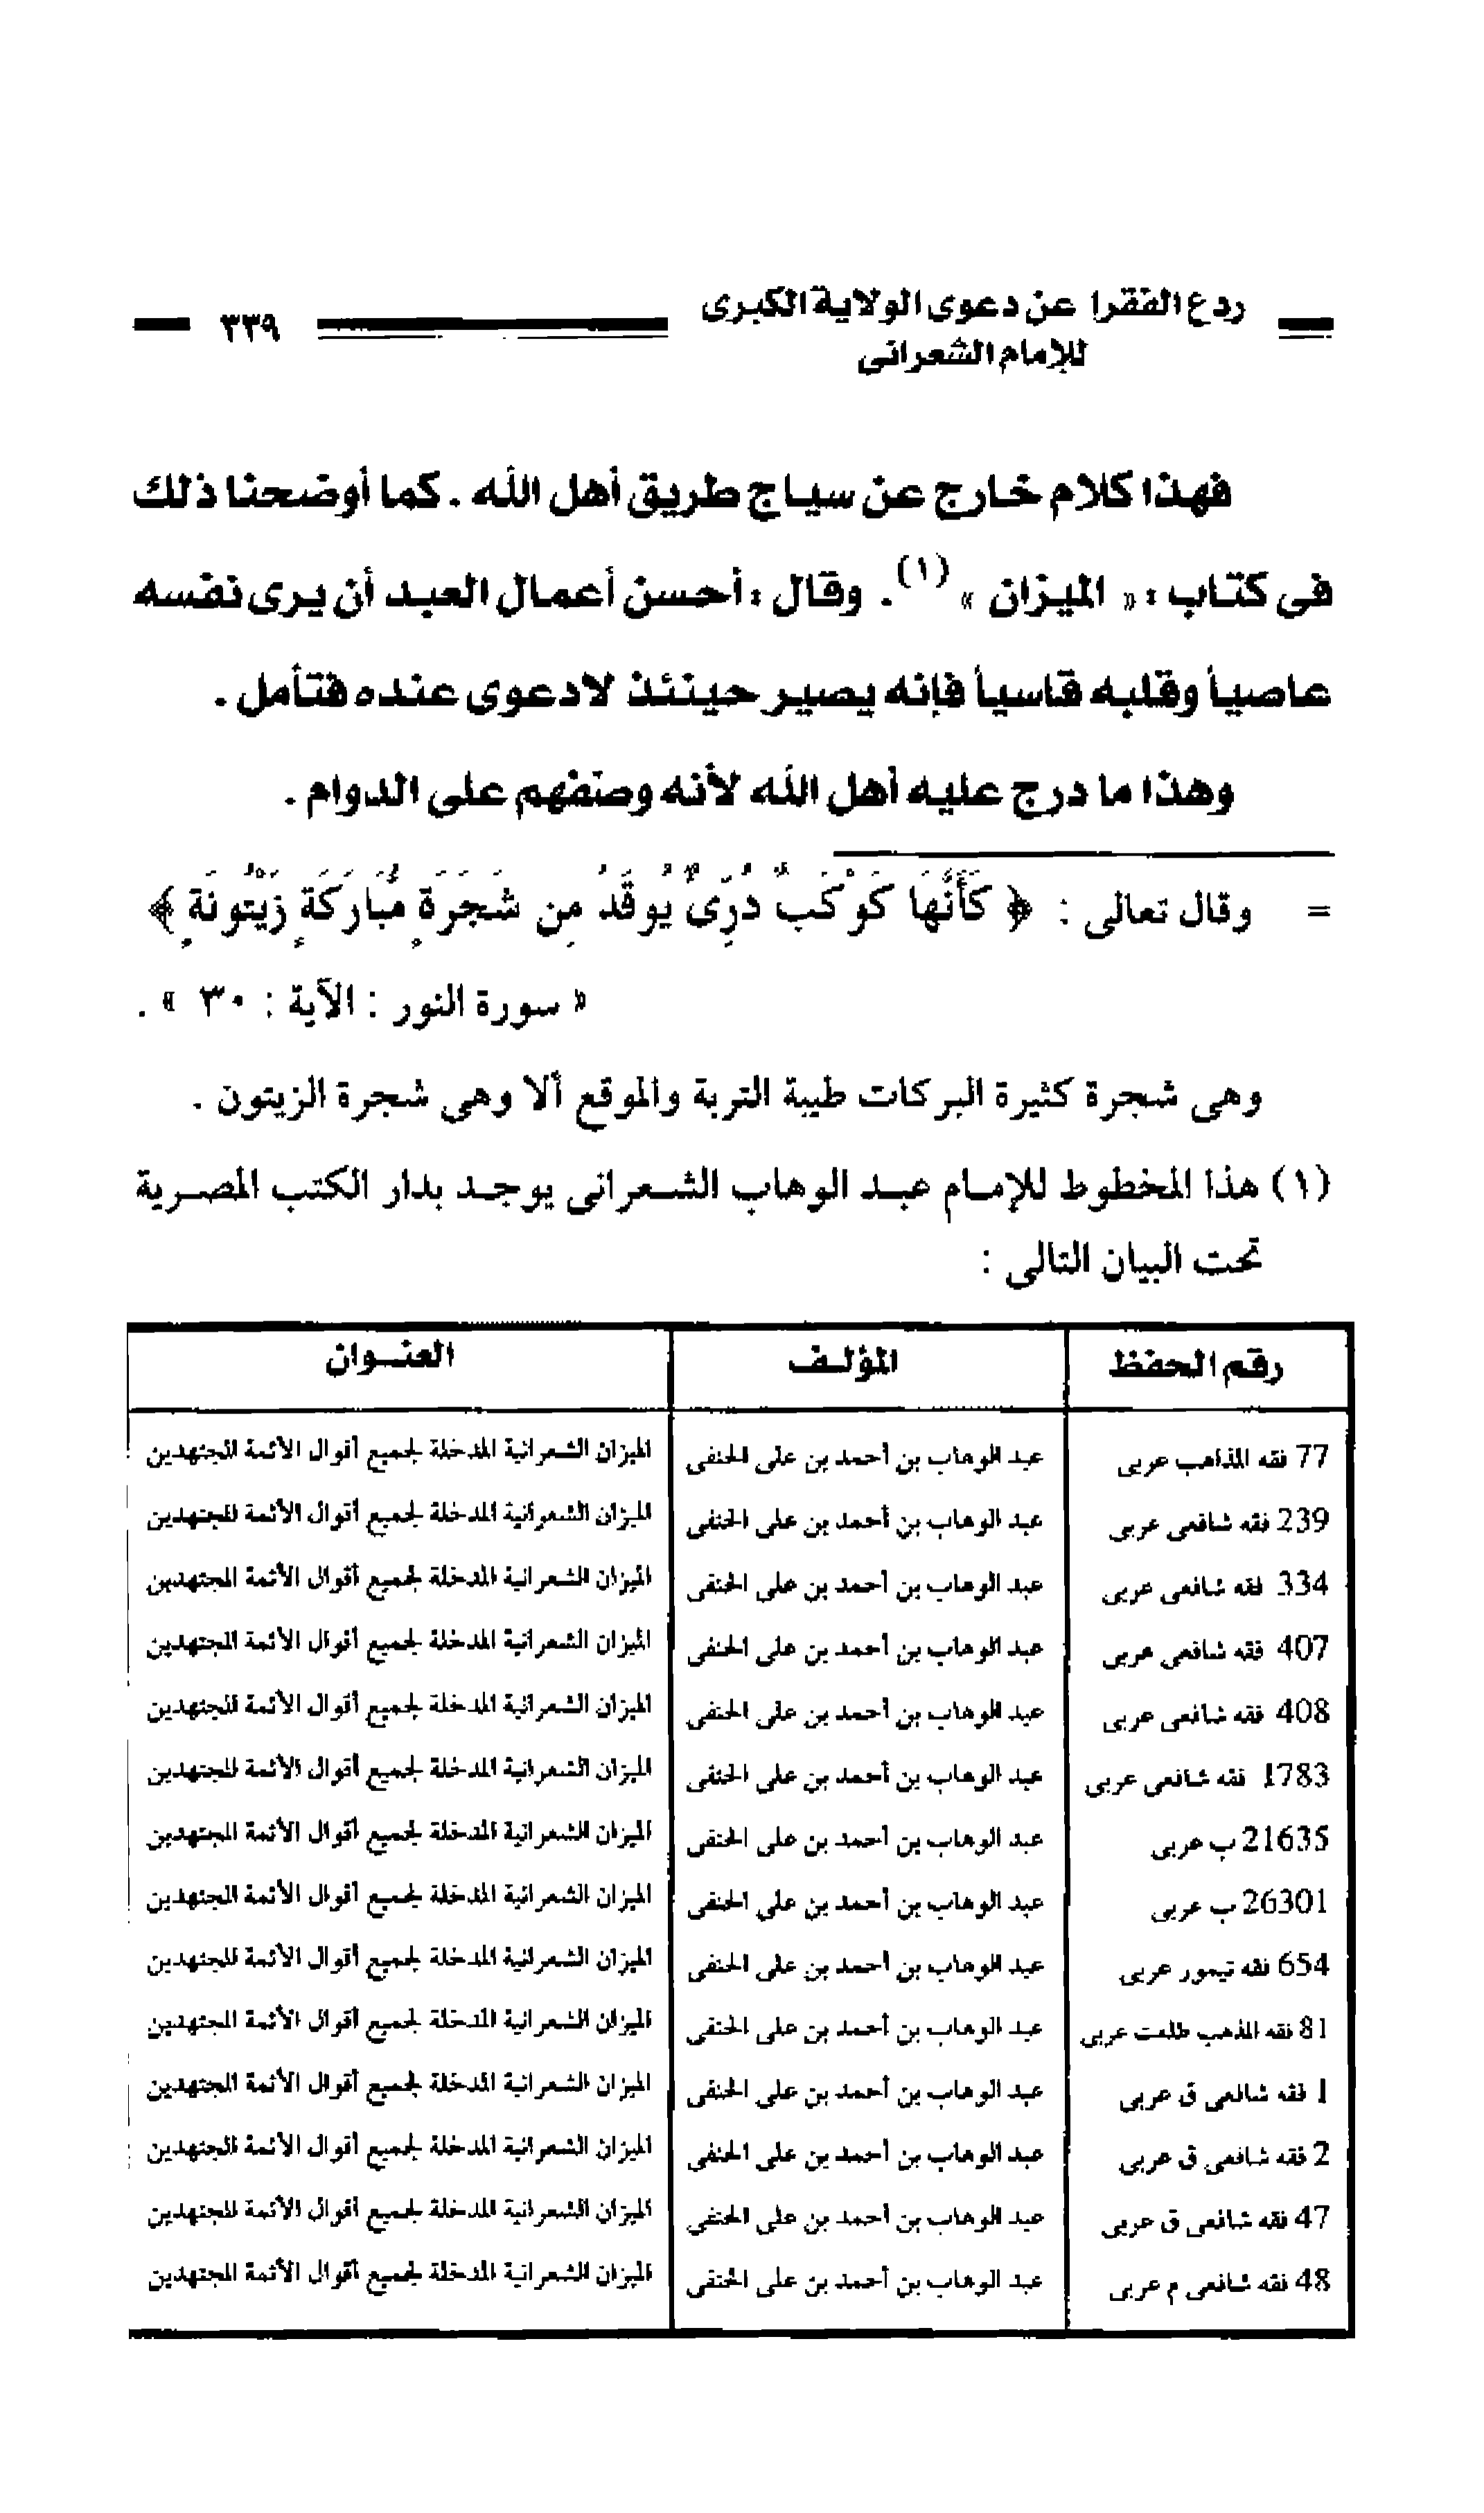 ردع الفقرا عن دعوى الولاية الكبرى
للإمام الشعرانى
٣٣٩
فهذا كلام خارج عن سياج طريق أهل الله . كما أوضحنا ذلك
فى كتاب : « الميزان » (١) . وقال : أحسن أعمال العبد أن يرى نفسه
عاصياً وقلبه قاسياً فإنه يصير حينئذ لا دعوى عنده فتأمل .
وهذا ما درج عليه أهل الله لأنه وصفهم على الدوام .
= وقال تعالى : ﴿ كَأَنَّهَا كَوْكَبٌ دُرِّىٌّ يُوقَدُ مِن شَجَرَةٍ مُّبَارَكَةٍ زَيْتُونَةٍ ﴾
« سورة النور : الآية : ٣٠ » .
وهى شجرة كثيرة البركات طيبة التربة والموقع ألا وهى شجرة الزيتون .
(١) هذا المخطوط للإمام عبد الوهاب الشعرانى يوجد بدار الكتب المصرية
تحت البيان التالى :
رقم الحفظ المؤلف العنوان
77 فقه المذاهب عربى عبد الوهاب بن أحمد بن على الحنفى الميزان الشعرانية المدخلة لجميع أقوال الأئمة المجتهدين
239 فقه شافعى عربى عبد الوهاب بن أحمد بن على الحنفى الميزان الشعرانية المدخلة لجميع أقوال الأئمة المجتهدين
334 فقه شافعى عربى عبد الوهاب بن أحمد بن على الحنفى الميزان الشعرانية المدخلة لجميع أقوال الأئمة المجتهدين
407 فقه شافعى عربى عبد الوهاب بن أحمد بن على الحنفى الميزان الشعرانية المدخلة لجميع أقوال الأئمة المجتهدين
408 فقه شافعى عربى عبد الوهاب بن أحمد بن على الحنفى الميزان الشعرانية المدخلة لجميع أقوال الأئمة المجتهدين
1783 فقه شافعى عربى عبد الوهاب بن أحمد بن على الحنفى الميزان الشعرانية المدخلة لجميع أقوال الأئمة المجتهدين
21635 ب عربى عبد الوهاب بن أحمد بن على الحنفى الميزان الشعرانية المدخلة لجميع أقوال الأئمة المجتهدين
26301 ب عربى عبد الوهاب بن أحمد بن على الحنفى الميزان الشعرانية المدخلة لجميع أقوال الأئمة المجتهدين
654 فقه تيمور عربى عبد الوهاب بن أحمد بن على الحنفى الميزان الشعرانية المدخلة لجميع أقوال الأئمة المجتهدين
81 فقه المذهب طلعت عربى عبد الوهاب بن أحمد بن على الحنفى الميزان الشعرانية المدخلة لجميع أقوال الأئمة المجتهدين
1 فقه شافعى ق عربى عبد الوهاب بن أحمد بن على الحنفى الميزان الشعرانية المدخلة لجميع أقوال الأئمة المجتهدين
2 فقه شافعى ق عربى عبد الوهاب بن أحمد بن على الحنفى الميزان الشعرانية المدخلة لجميع أقوال الأئمة المجتهدين
47 فقه شافعى ق عربى عبد الوهاب بن أحمد بن على الحنفى الميزان الشعرانية المدخلة لجميع أقوال الأئمة المجتهدين
48 فقه شافعى م عربى عبد الوهاب بن أحمد بن على الحنفى الميزان الشعرانية المدخلة لجميع أقوال الأئمة المجتهدين